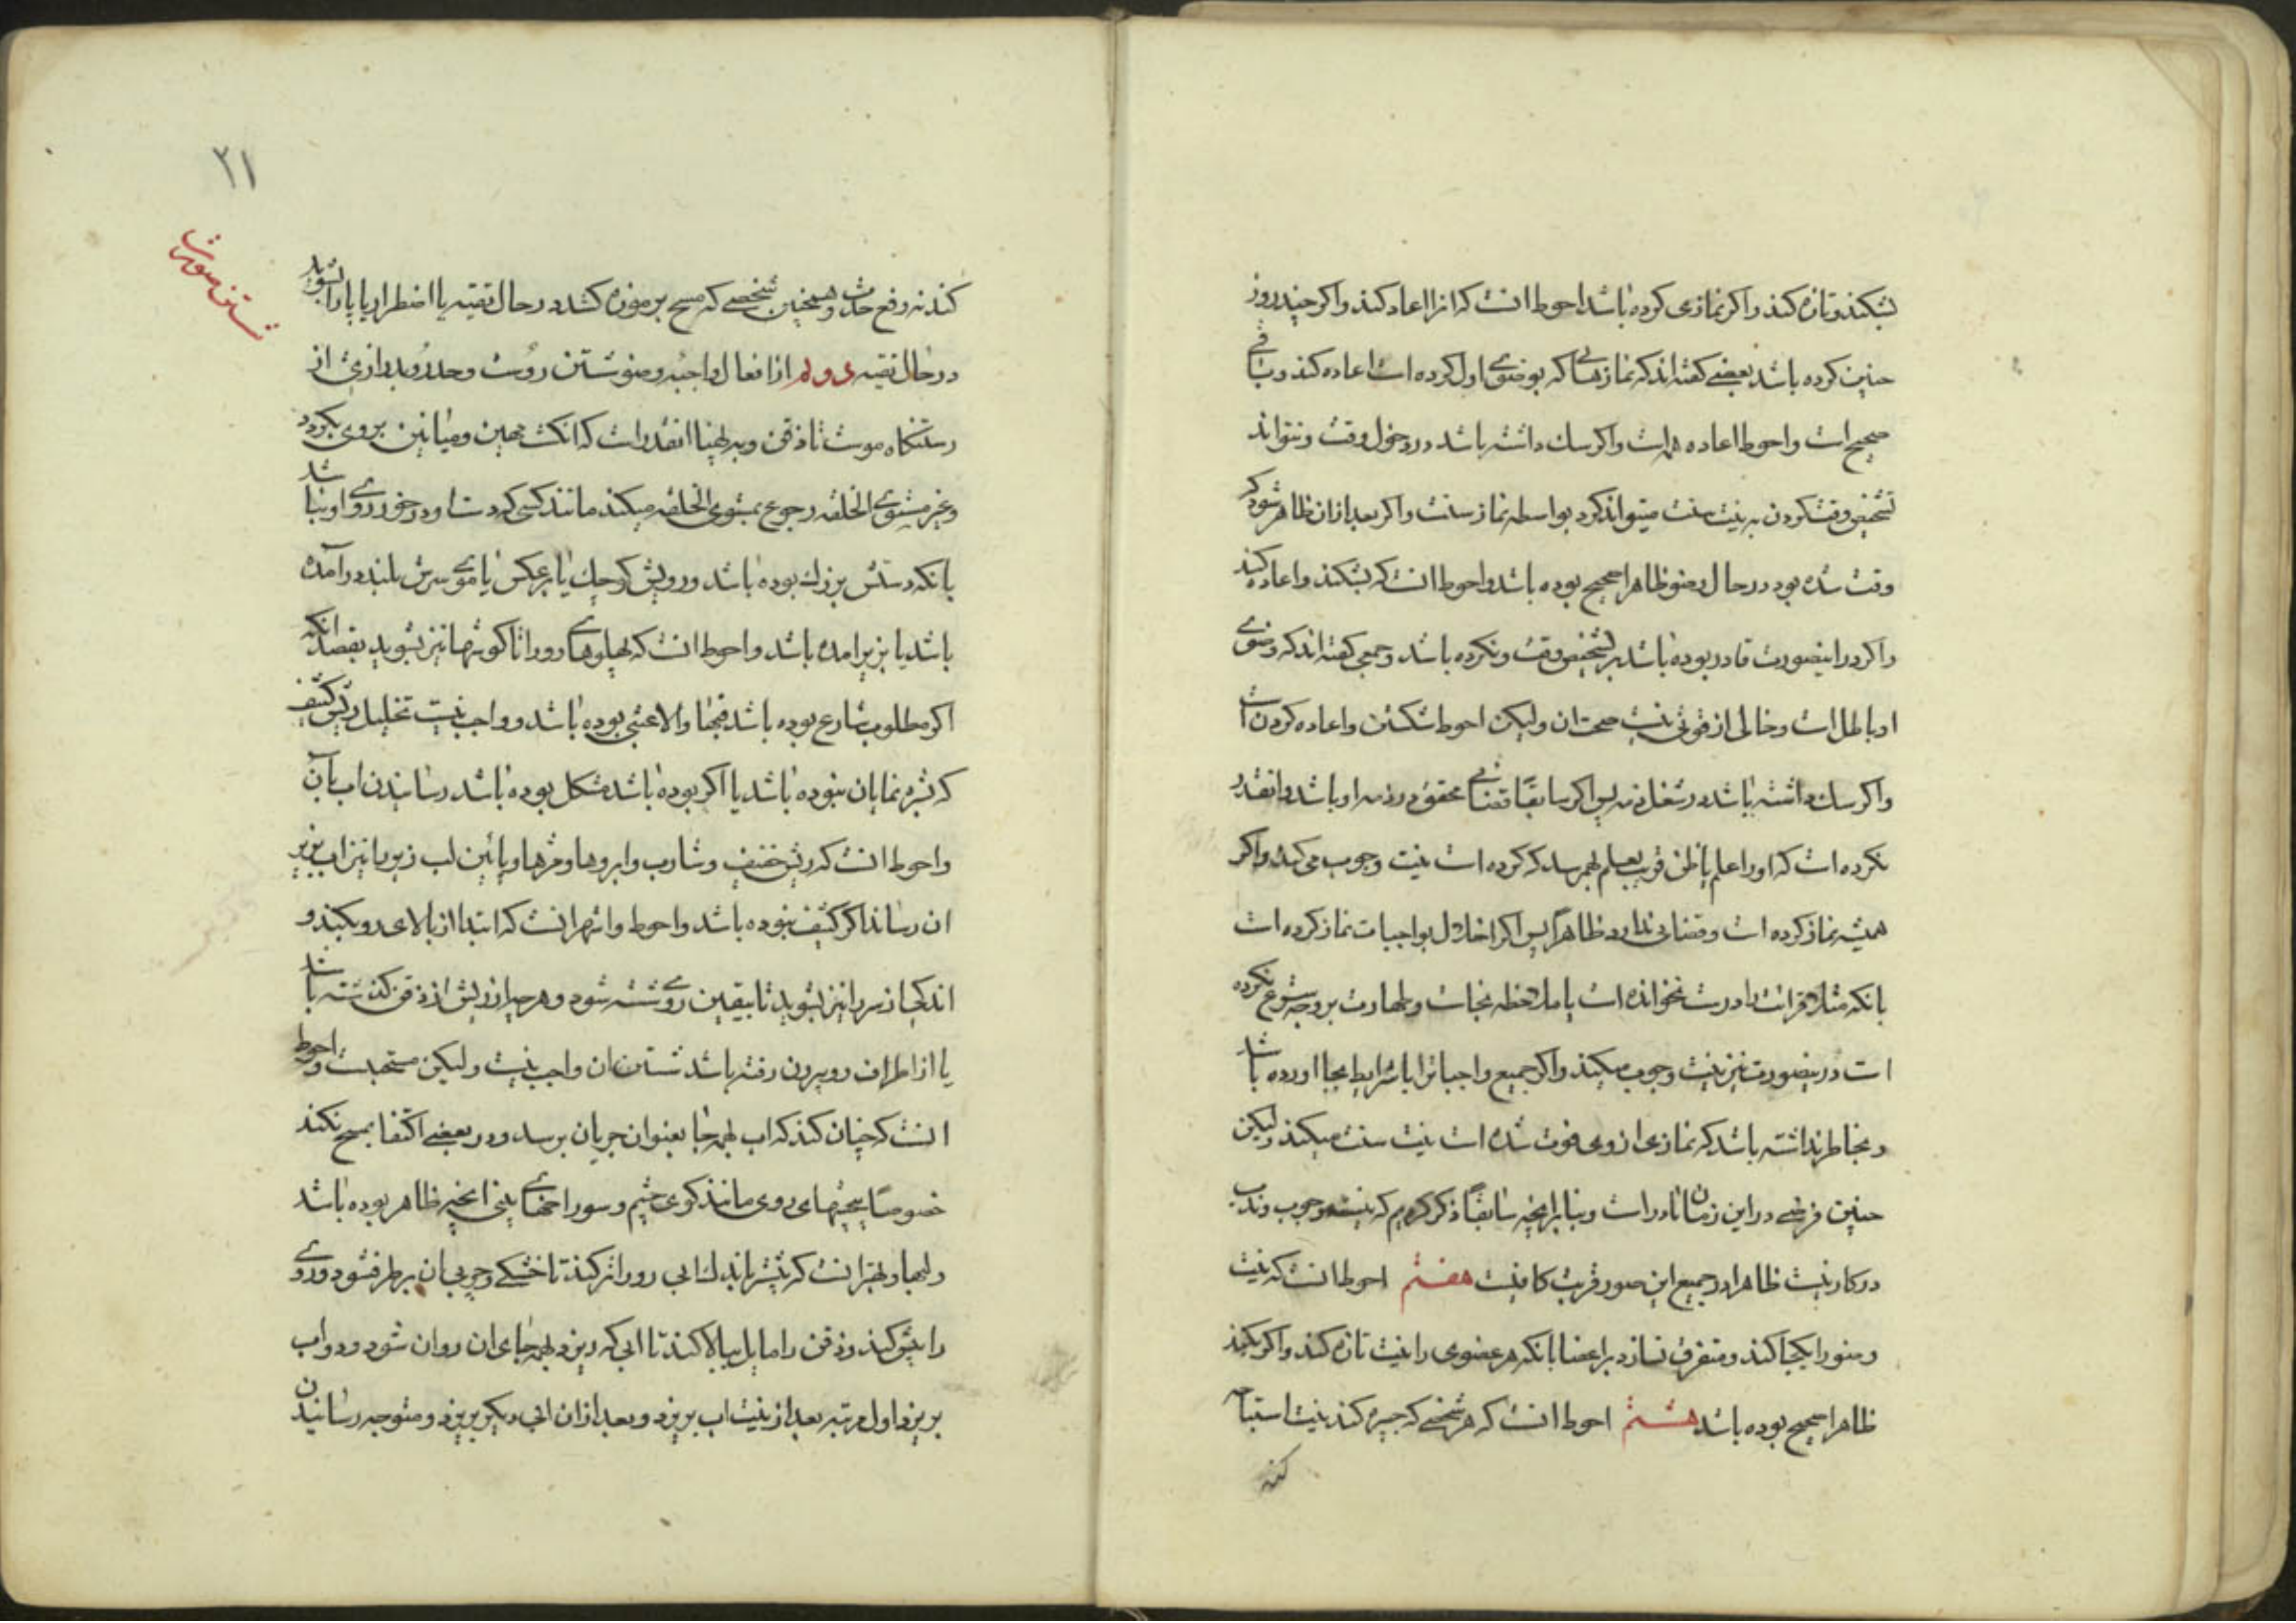 بشکند و تازه کند و اکر نمازی کرده باشد احوط انست که انرا اعاده کند و اکر چند روز
چنین کرده باشد بعضی کفته اند که نمازهائی که بوضوی اول کرده است اعاده کند و باقی
صحیح است و احوط اعاده همه است و اکر شک داشته باشد در دخول وقت و نتواند
تشخیص وقت کردن به نیت سنت میتواند کرد بواسطه نماز سنت و اکر بعد از ان ظاهر شود که
وقت شده بود در حال وضو ظاهرا صحیح بوده باشد و احوط انست که بشکند و اعاده کند
و اکر در اینصورت قادر بوده باشد بر تشخیص وقت و نکرده باشد و جمعی کفته اند که وضوی
او باطل است و خالی از قوتی نیست صحت ان ولیکن احوط شکستن و اعاده کردن است
و اکر شک داشته باشد در شغل ذمه پس اکر سابقا قضائی محقق در ذمه او باشد و انقدر
نکرده است که او را علم یا ظن قریب بعلم بهم رسد که کرده است نیت وجوب می کند و اکر
همیشه نماز کرده است و قضائی ندارد ظاهرا پس اکر اخلال بواجبات نماز کرده است
بانکه مثلا قرائت را درست نخوانده است یا ملاحظه نجاسات و طهارت بر وجه شرع نکرده
است در نیصورت نیز نیت وجوب میکند و اکر جمیع واجبات را با شرایط بجا اورده باشد
و بخاطر نداشته باشد که نمازی از وی فوت شده است نیت سنت میکند ولیکن
چنین فرضی در این زمان نادر است و بنا بر انچه سابقا ذکر کردیم که نیت وجوب و ندب
در کار نیست ظاهرا در جمیع این صور قربت کافیست هفتم احوط انست که نیت
وضو را یکجا کند و متفرق نسازد بر اعضا بانکه هر عضوی را نیت تازه کند و اکر بکند
ظاهرا صحیح بوده باشد هشتم احوط انست که هر شخصی که جبیره کند نیت استباحه
کند
۲۱
شستن صورت
کند نه رفع حدث و همچنین شخصی که مسح بر موزه کشد در حال تقیه یا اضطرار یا پا را بشوید
در حال تقیه دویم از افعال واجبه وضو شستن روست و حد رو بدرازی از
رستنکاه موست تا ذقن و به پهنا انقدر است که انکشت مهین و میانین بر وی بکردد
و غیر مستوی الخلقه رجوع بمستوی الخلقه میکند مانند کسی که دست او در خور روی او نباشد
بانکه دستش بزرك بوده باشد و رویش کوچك یا بر عکس یا موی سرش بلند در آمده
باشد یا بزیر امده باشد و احوط انست که پهلوهای رو را تا کوشها نیز بشوید بقصد انکه
اکر مطلوب شارع بوده باشد فبها والا عبثی بوده باشد و واجب نیست تخلیل ریش کثیف
که بشره نمایان نبوده باشد یا اکر بوده باشد مشکل بوده باشد رسانیدن اب بآن
و احوط انست که ریش خفیف و شارب و ابروها و مژها و پائین لب زیر را نیز اب بزیر
ان رساند اکر کثیف نبوده باشد و احوط و اشهر انست که ابتدا از بالای رو بکند و
اندکی از سر را نیز بشوید تا بیقین روی شسته شود و هر چه از ریش از ذقن کذشته باشد
یا از اطراف رو بیرون رفته باشد شستن ان واجب نیست ولیکن مستحبست و احوط
انست که چنان کند که اب بهمه جا بعنوان جریان برسد و در بعضی اکتفا بمسح نکند
خصوصا پیچهای روی مانند کوی چشم و سوراخهای بینی انچه ظاهر بوده باشد
و لبها و بهتر انست که پیشتر باندك ابی رو را تر کند تا خشکی و چربی ان بر طرف شود و روی
را پیش کند و ذقن را مایل ببالا کند تا ابی که ریزد بهمه جای ان روان شود و دو اب
بریزد اول مرتبه بعد از نیت اب بریزد و بعد از ان ابی دیکر بریزد و متوجه رسانیدن